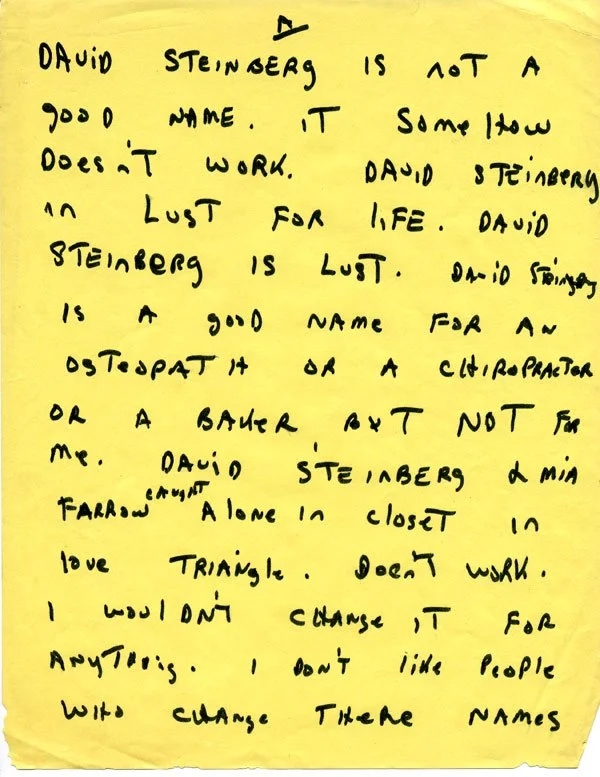 A
DAViD STEiNBERg IS noT A
gooD NAME. iT SomeHow
Doesn'T WORK. DAViD STEinBERg
in LUST FOR liFE. DAViD
STEinBERg IS LUST. DAViD STEinBERg
IS A gooD NAME FOR AN
OSTEOPATH OR A CHIROPRACTOR
OR A BAKER BUT NOT FOR
Me. DAViD STEinBERg & MiA
FARROW CAUgHT Alone in closeT in
love TRiANgle. Doen'T WORK.
I woulDN'T CHANge iT FOR
ANyTHing. I DON'T like PeoPle
WHO CHANge THERE NAMES